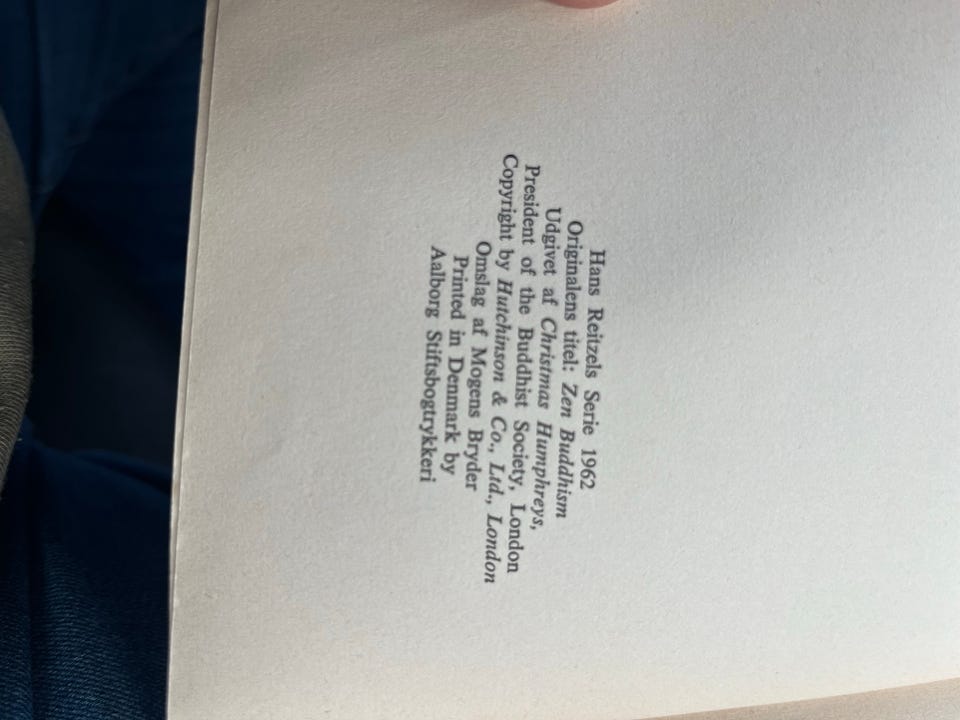 Hans Reitzels Serie 1962
Originalens titel: Zen Buddhism
Udgivet af Christmas Humphreys,
President of the Buddhist Society, London
Copyright by Hutchinson & Co., Ltd., London
Omslag af Mogens Bryder
Printed in Denmark by
Aalborg Stiftsbogtrykkeri